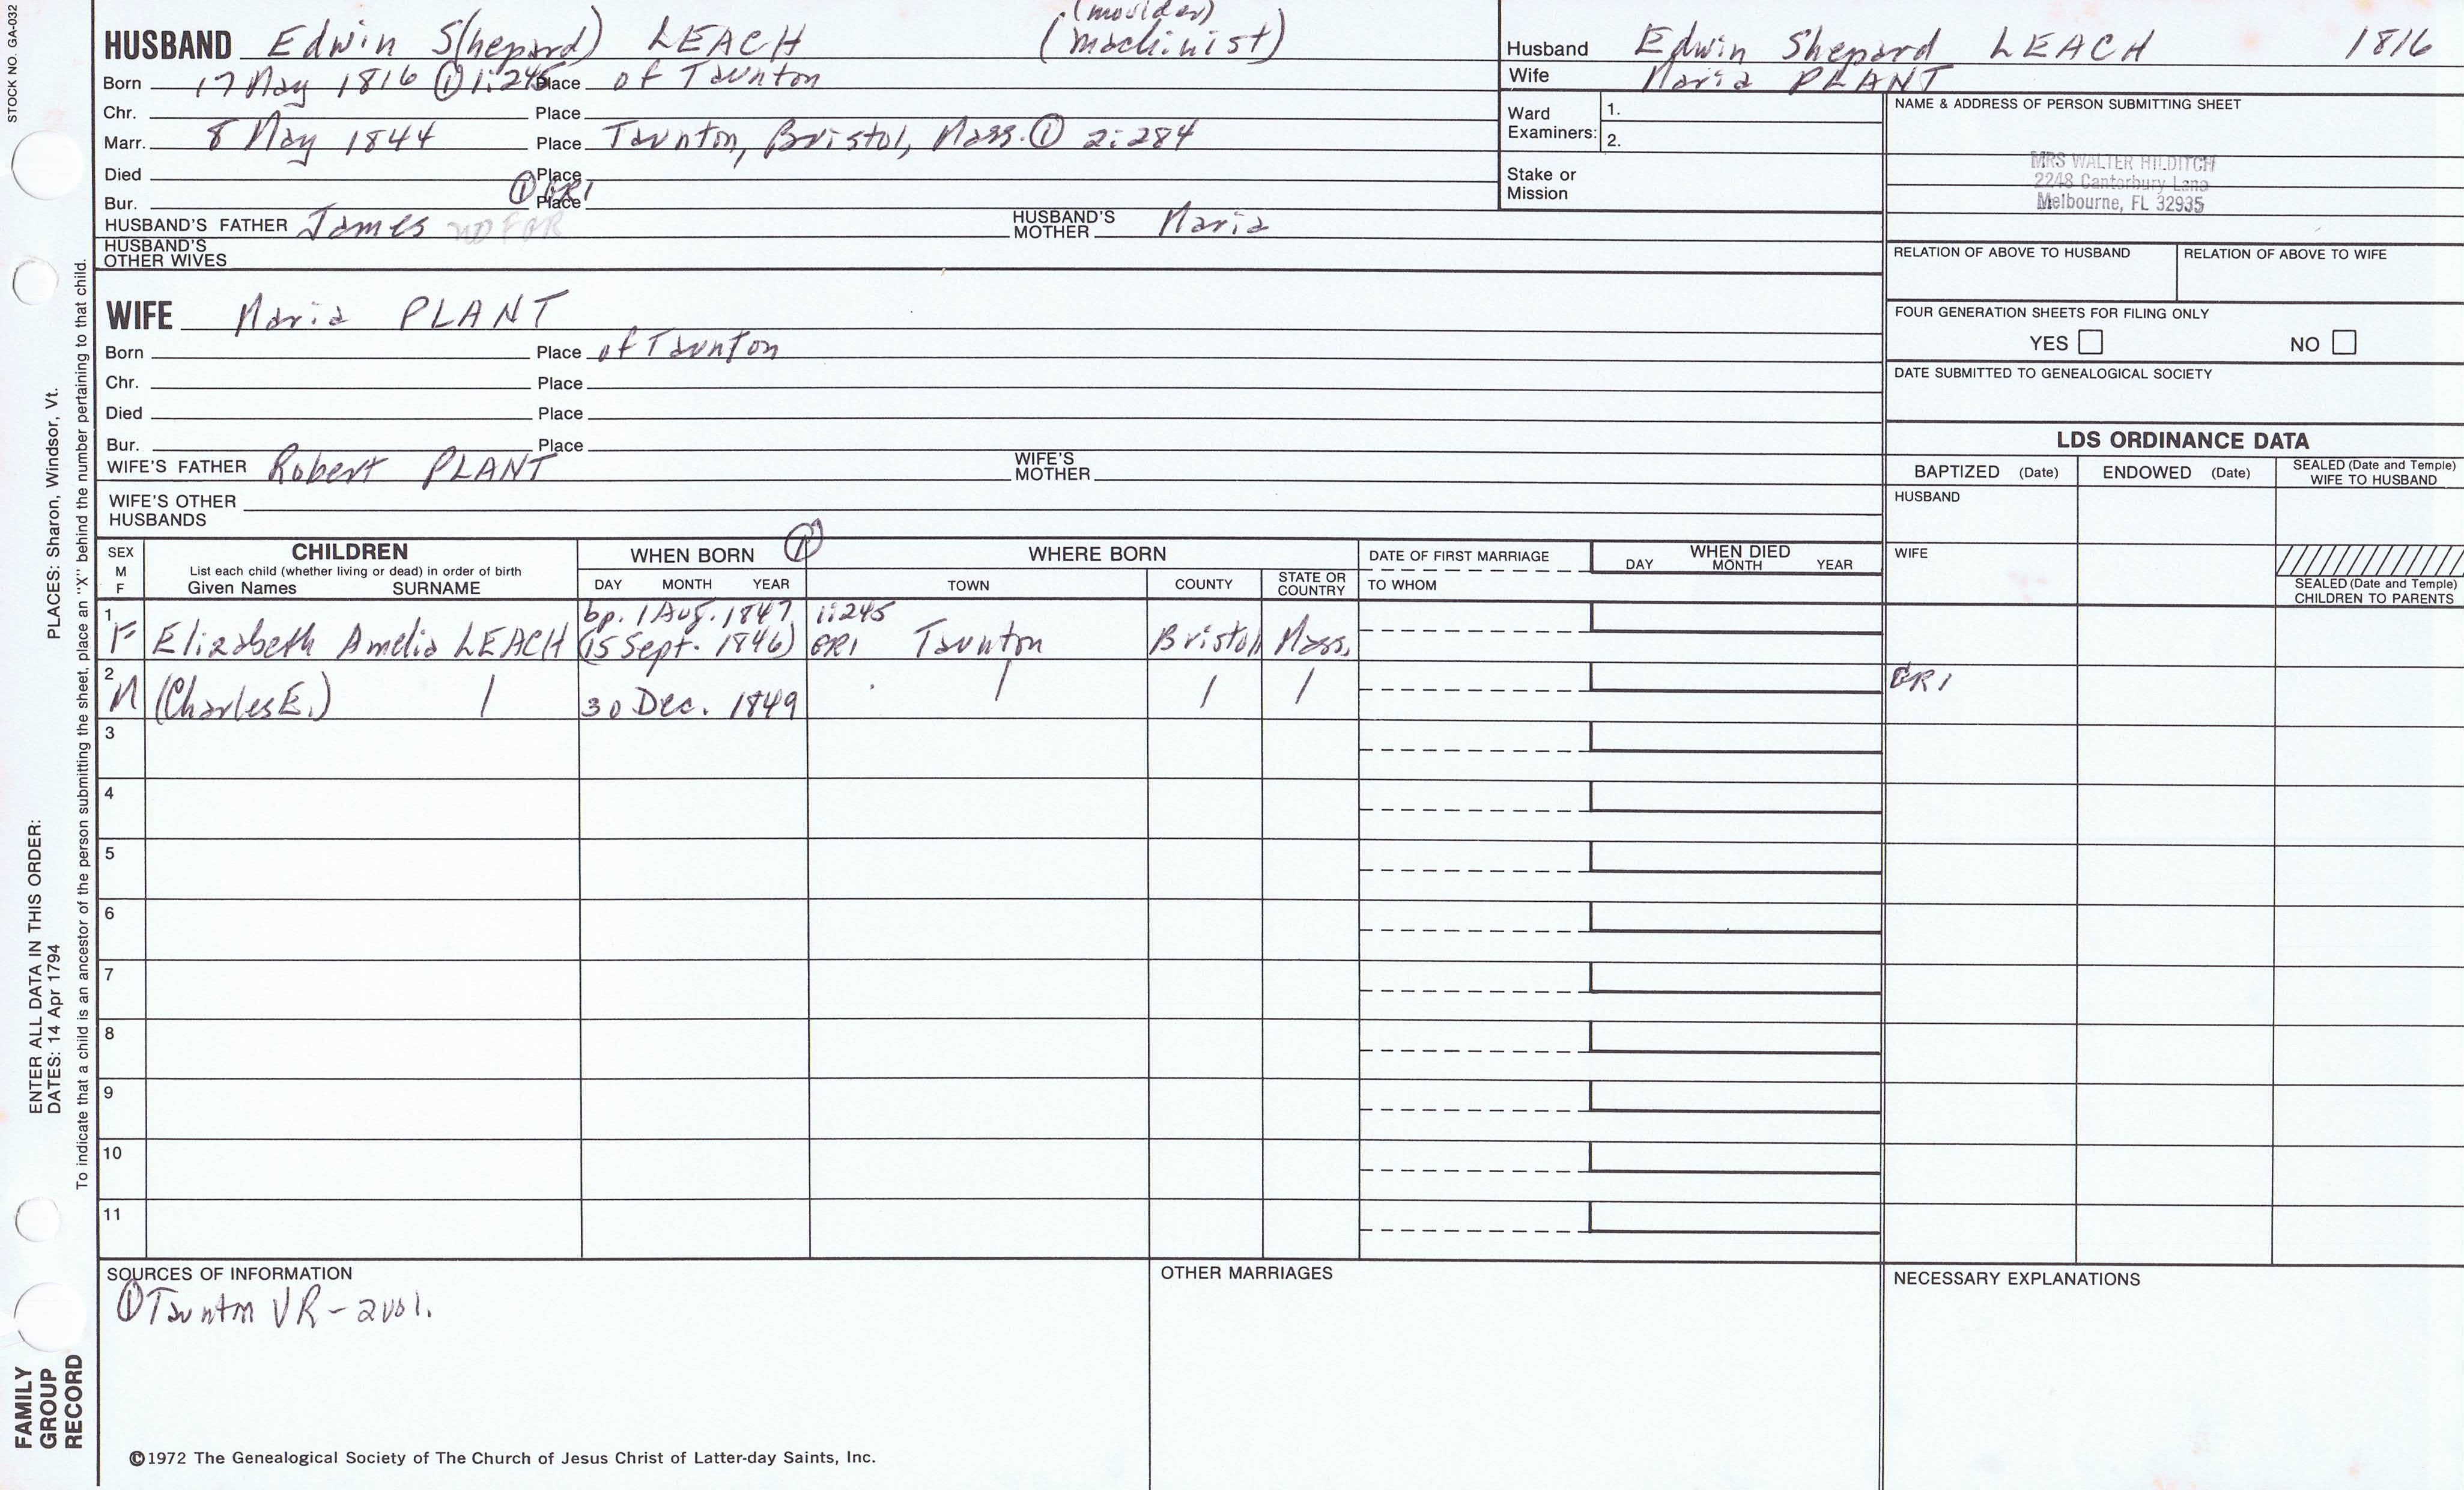 STOCK NO. GA-032
(moulder)
HUSBAND Edwin S(hepard) LEACH (machinist)
Born 17 May 1816 ① 1:245 Place of Taunton
Chr. Place
Marr. 8 May 1844 Place Taunton, Bristol, Mass. ① 2:284
Died Place
① GR1
Bur. Place
HUSBAND'S FATHER James HUSBAND'S MOTHER Maria
HUSBAND'S OTHER WIVES
Husband Edwin Shepard LEACH 1816
Wife Maria PLANT
Ward Examiners: 1.
2.
Stake or Mission
NAME & ADDRESS OF PERSON SUBMITTING SHEET
MRS WALTER HILDITCH
2248 Canterbury Lane
Melbourne, FL 32935
RELATION OF ABOVE TO HUSBAND RELATION OF ABOVE TO WIFE
FOUR GENERATION SHEETS FOR FILING ONLY
YES NO
DATE SUBMITTED TO GENEALOGICAL SOCIETY
WIFE Maria PLANT
Born Place of Taunton
Chr. Place
Died Place
Bur. Place
WIFE'S FATHER Robert PLANT WIFE'S MOTHER
WIFE'S OTHER HUSBANDS
LDS ORDINANCE DATA
BAPTIZED (Date) ENDOWED (Date) SEALED (Date and Temple) WIFE TO HUSBAND
HUSBAND
WIFE
SEALED (Date and Temple) CHILDREN TO PARENTS
SEX M F
CHILDREN
List each child (whether living or dead) in order of birth
Given Names SURNAME
WHEN BORN ①
DAY MONTH YEAR
WHERE BORN
TOWN COUNTY STATE OR COUNTRY
DATE OF FIRST MARRIAGE
TO WHOM
WHEN DIED
DAY MONTH YEAR
1 bp. 1 Aug. 1847 1:245
F Elizabeth Amelia LEACH (15 Sept. 1846) GR1 Taunton Bristol Mass.
2 M (Charles E.) 30 Dec. 1849 GR1
3
4
5
6
7
8
9
10
11
SOURCES OF INFORMATION
① Taunton VR - 2 vol.
OTHER MARRIAGES
NECESSARY EXPLANATIONS
©1972 The Genealogical Society of The Church of Jesus Christ of Latter-day Saints, Inc.
PLACES: Sharon, Windsor, Vt.
ENTER ALL DATA IN THIS ORDER:
DATES: 14 Apr 1794
To indicate that a child is an ancestor of the person submitting the sheet, place an "X" behind the number pertaining to that child.
FAMILY
GROUP
RECORD